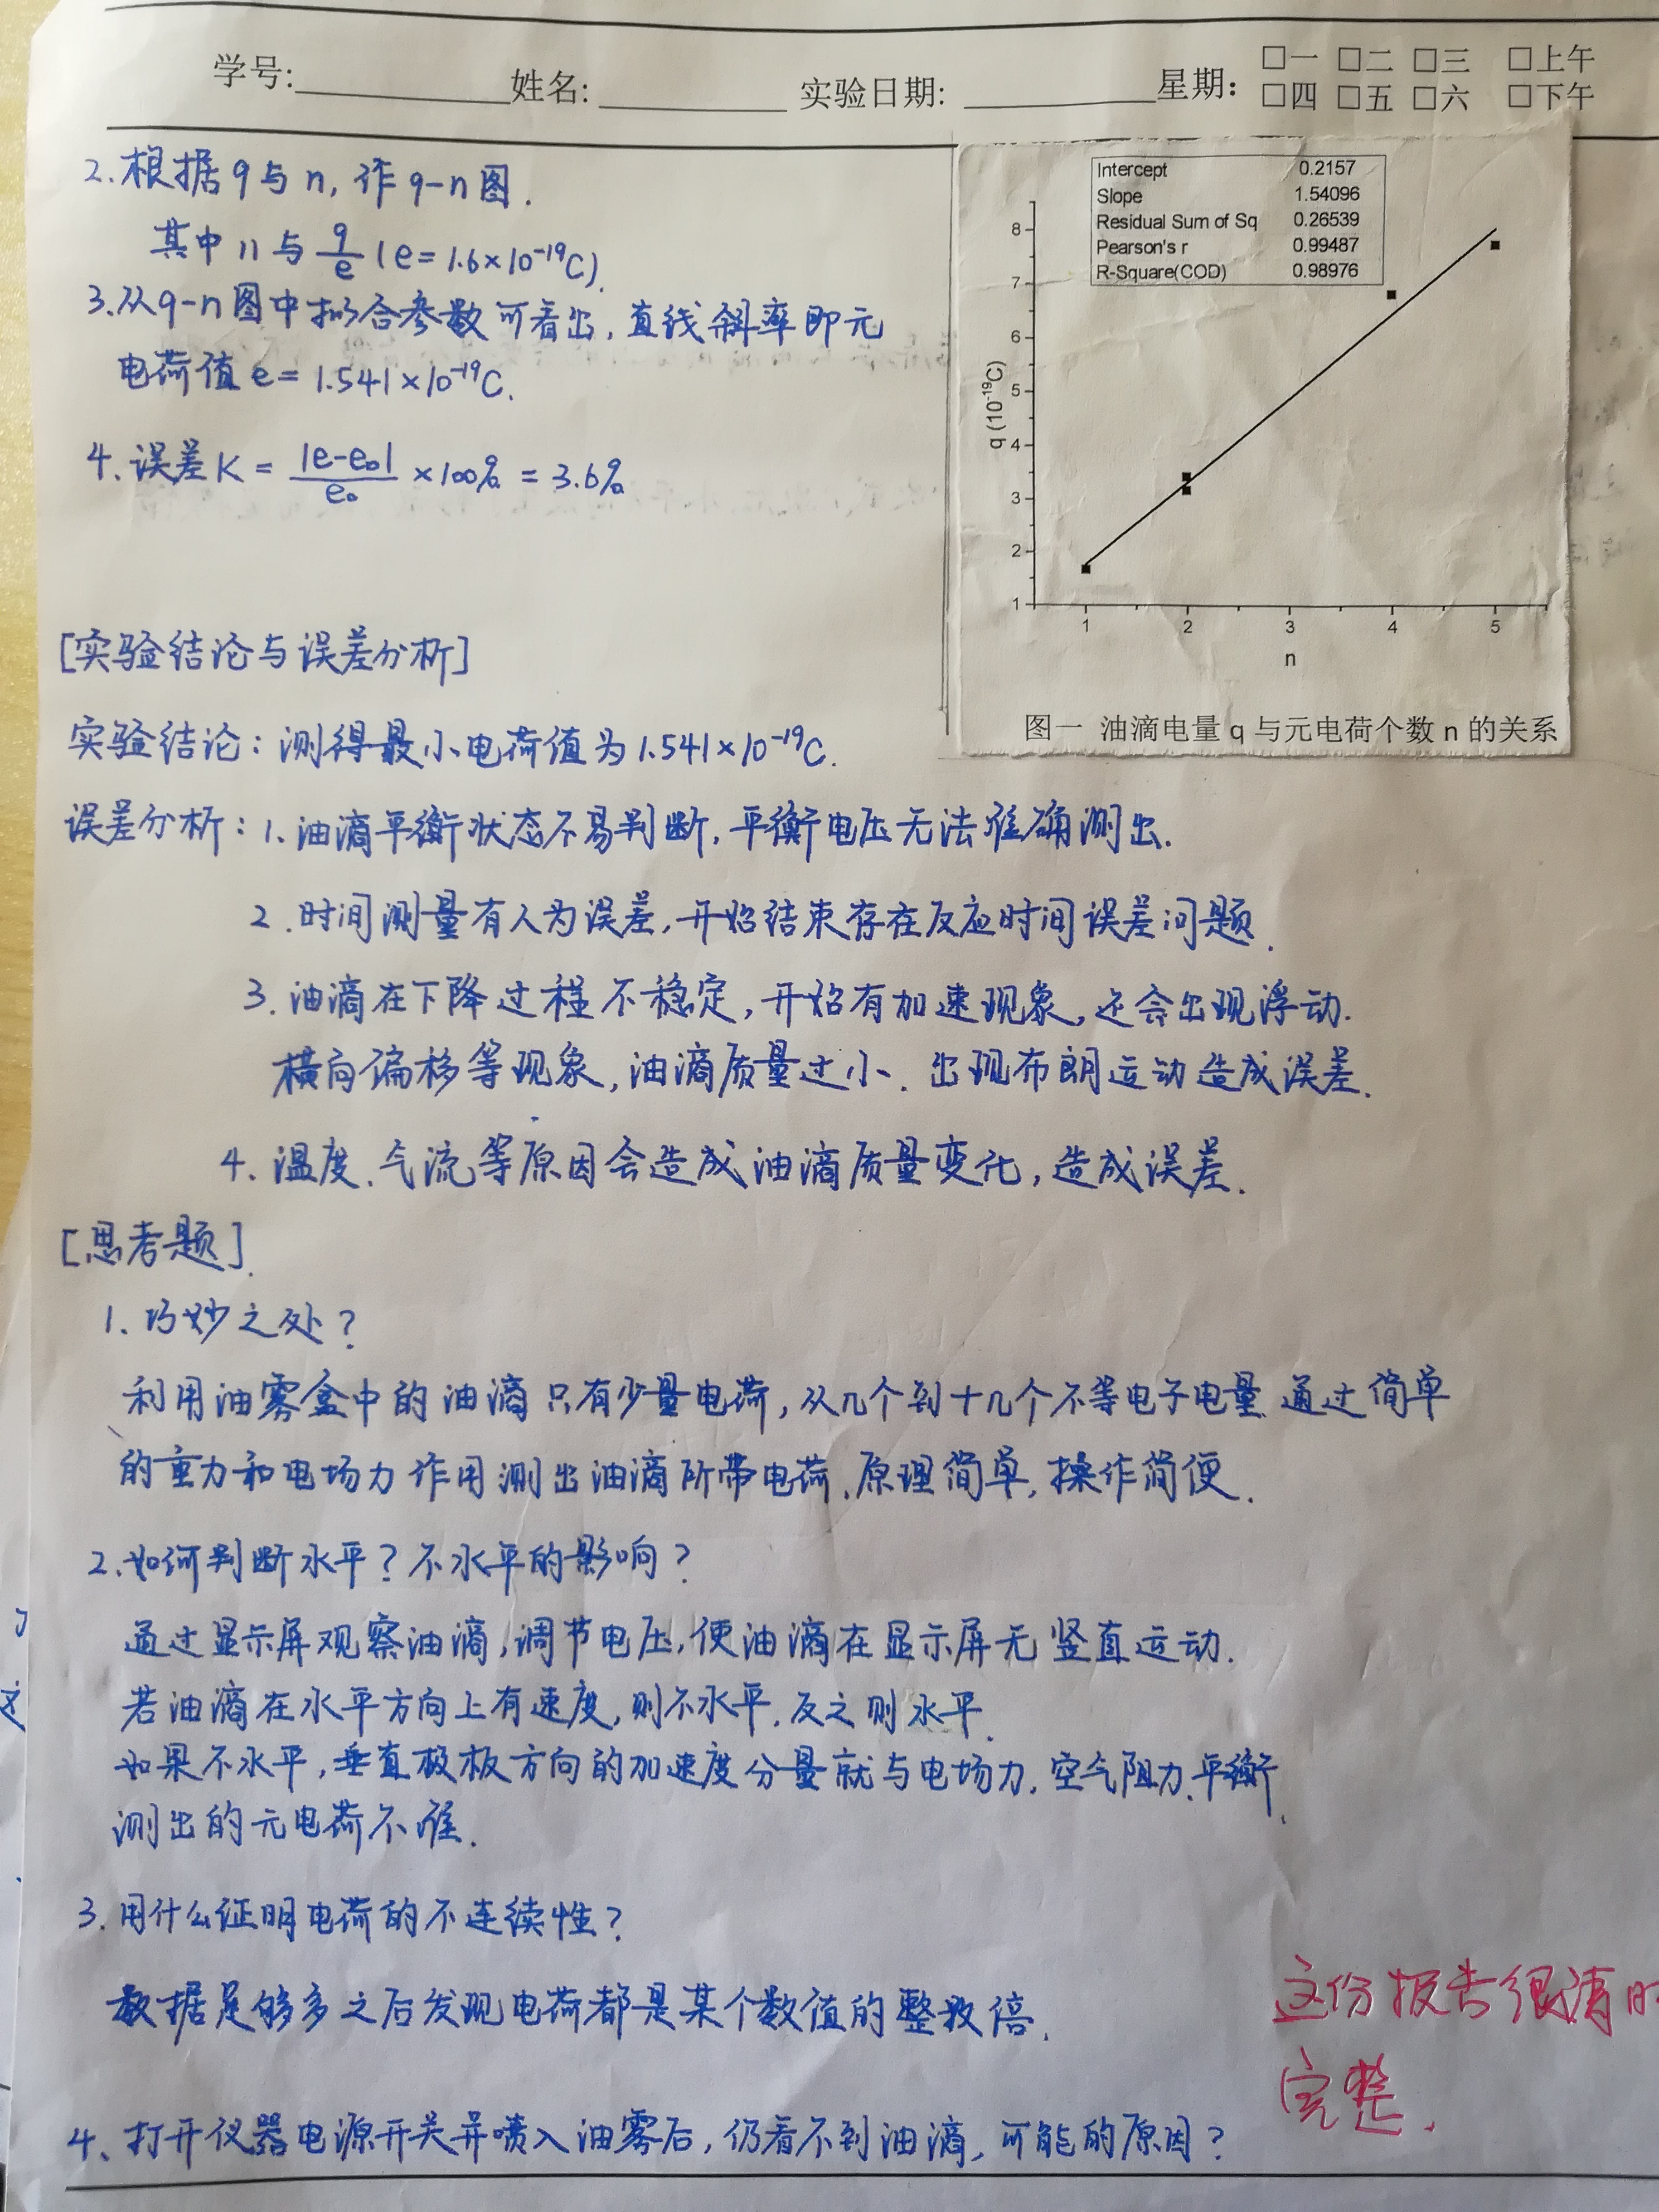 学号:
姓名:
实验日期:
星期:
□一 □二 □三 □上午
□四 □五 □六 □下午
2.根据q与n,作q-n图.
其中n与q/e (e=1.6×10⁻¹⁹C).
3.从q-n图中拟合参数可看出,直线斜率即元
电荷值e=1.541×10⁻¹⁹C.
4.误差K=|e-e₀|/e₀×100%=3.6%
Intercept 0.2157
Slope 1.54096
Residual Sum of Sq 0.26539
Pearson's r 0.99487
R-Square(COD) 0.98976
8
7
6
5
4
3
2
1
q (10⁻¹⁹C)
1 2 3 4 5
n
图一 油滴电量q与元电荷个数n的关系
[实验结论与误差分析]
实验结论:测得最小电荷值为1.541×10⁻¹⁹C.
误差分析:1、油滴平衡状态不易判断,平衡电压无法准确测出.
2.时间测量有人为误差,开始结束存在反应时间误差问题.
3.油滴在下降过程不稳定,开始有加速现象,还会出现浮动.
横向偏移等现象,油滴质量过小、出现布朗运动造成误差.
4、温度、气流等原因会造成油滴质量变化,造成误差.
[思考题].
1、巧妙之处?
利用油雾盒中的油滴只有少量电荷,从几个到十几个不等电子电量.通过简单
的重力和电场力作用测出油滴所带电荷.原理简单,操作简便.
2.如何判断水平?不水平的影响?
通过显示屏观察油滴,调节电压,使油滴在显示屏无竖直运动.
若油滴在水平方向上有速度,则不水平.反之则水平.
如果不水平,垂直极板方向的加速度分量就与电场力.空气阻力.平衡.
测出的元电荷不准.
3.用什么证明电荷的不连续性?
数据足够多之后发现电荷都是某个数值的整数倍.
4、打开仪器电源开关并喷入油雾后,仍看不到油滴,可能的原因?
这份报告很清
完整.